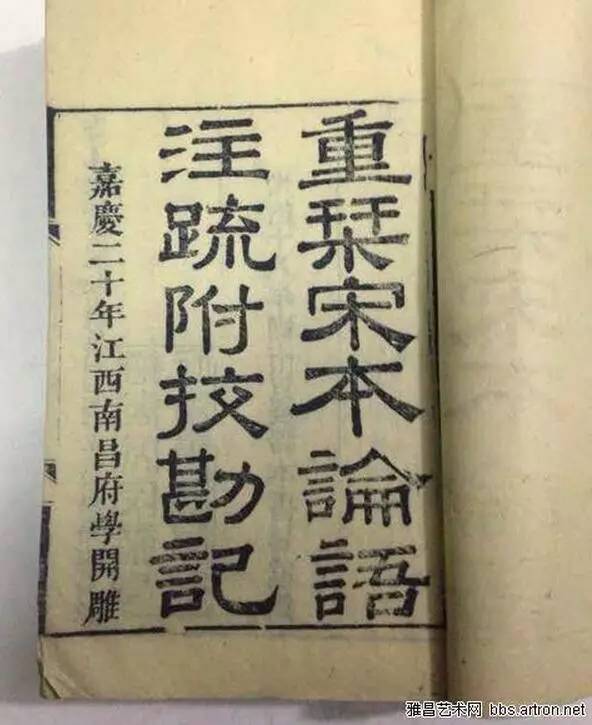 重栞宋本論語
注疏附挍勘記
嘉慶二十年江西南昌府學開雕
雅昌艺术网 bbs.artron.net